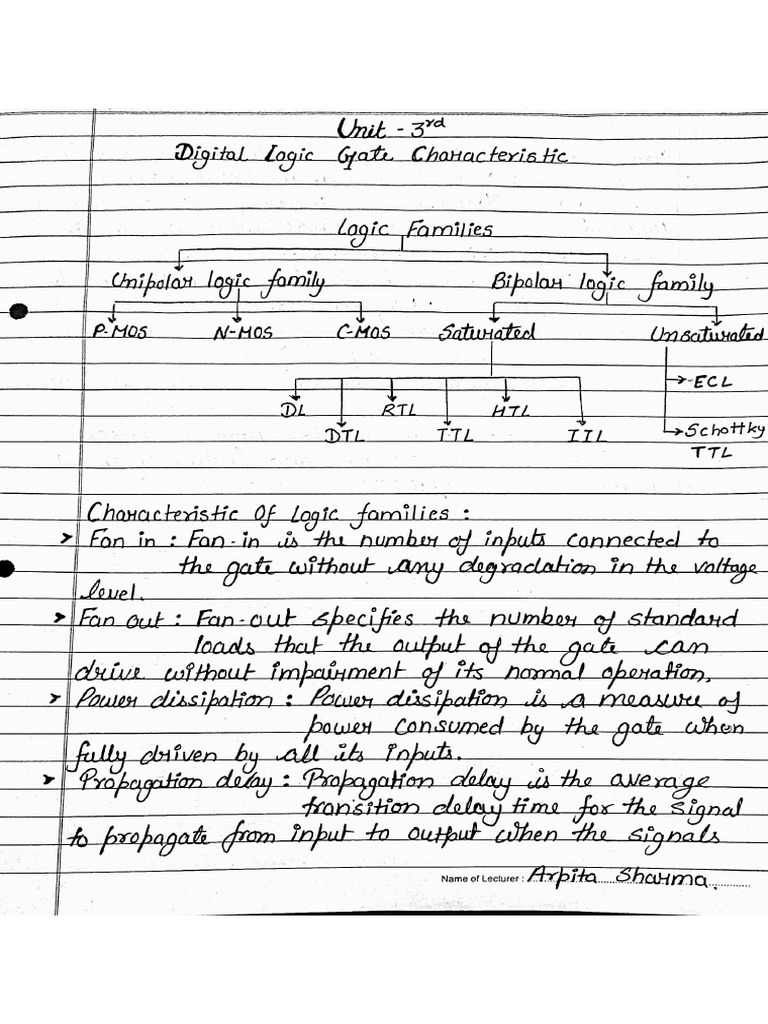 Unit - 3rd
Digital Logic Gate Characteristic
Logic Families
Unipolar logic family Bipolar logic family
P-MOS N-MOS C-MOS Saturated Unsaturated
ECL
DL RTL HTL
DTL TTL IIL Schottky
TTL
Characteristic Of Logic families :
Fan in : Fan-in is the number of inputs connected to
the gate without any degradation in the voltage
level.
Fan out : Fan-out specifies the number of standard
loads that the output of the gate can
drive without impairment of its normal operation.
Power dissipation : Power dissipation is a measure of
power consumed by the gate when
fully driven by all its inputs.
Propagation delay : Propagation delay is the average
transition delay time for the signal
to propagate from input to output when the signals
Name of Lecturer : Arpita Sharma.